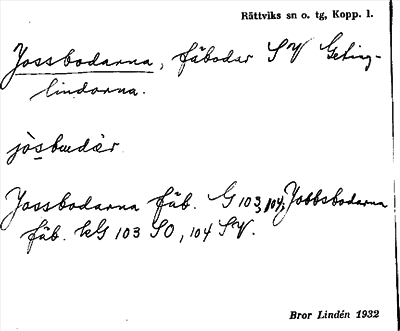 Rättviks sn o. tg, Kopp. l.
Jossbodarna, fäbodar SV Geting-
lindorna.
jòsbudär
Jossbodarna fäb. G 103, 104; Jobbsbodarna
fäb. kG 103 SO, 104 SV.
Bror Lindén 1932